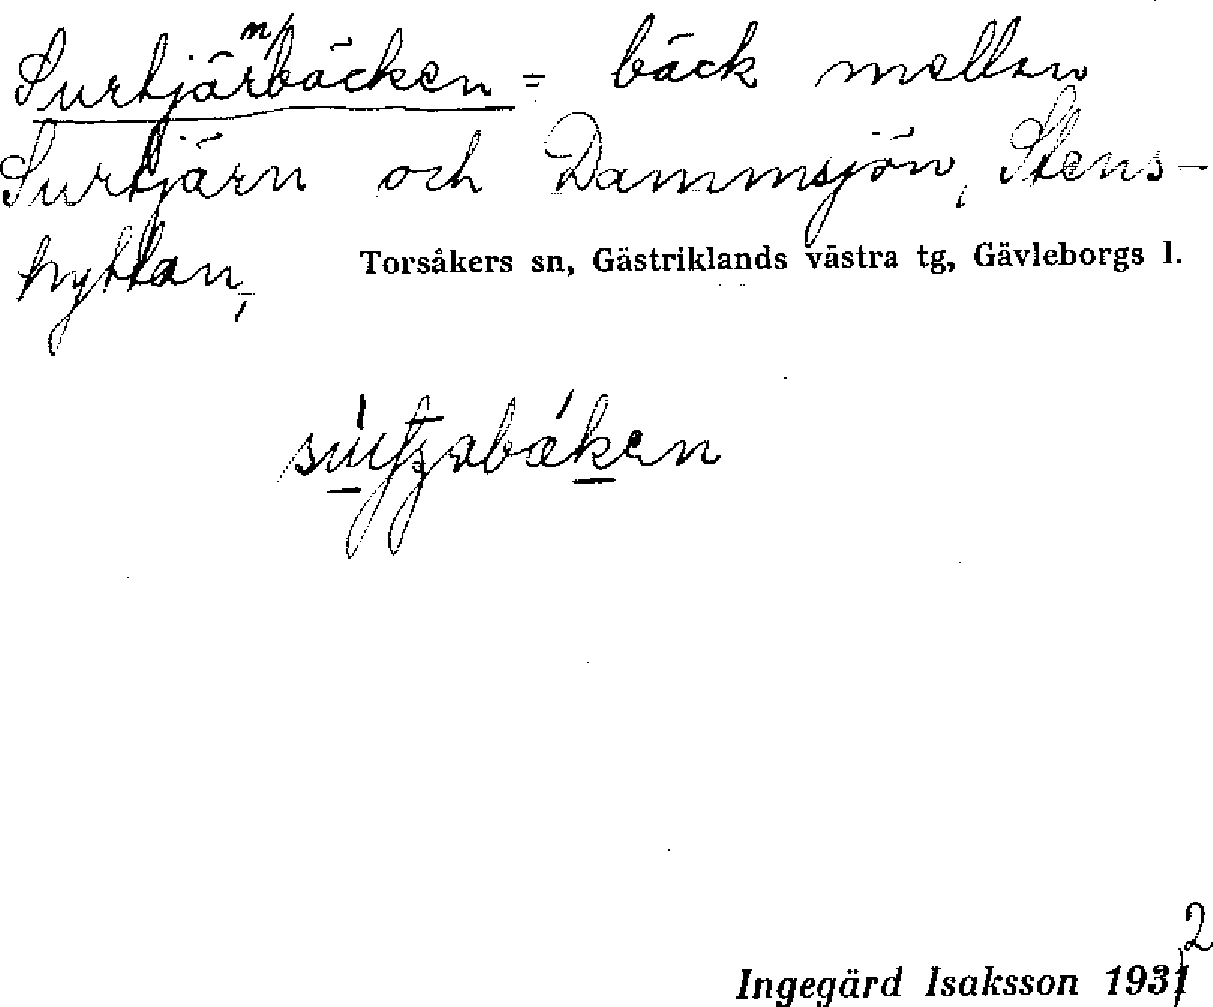 Surtjärnbäcken = bäck mellan
Surtjärn och Dammsjön, Stens-
hyttan, Torsåkers sn, Gästriklands västra tg, Gävleborgs l.
Ingegärd Isaksson 1932